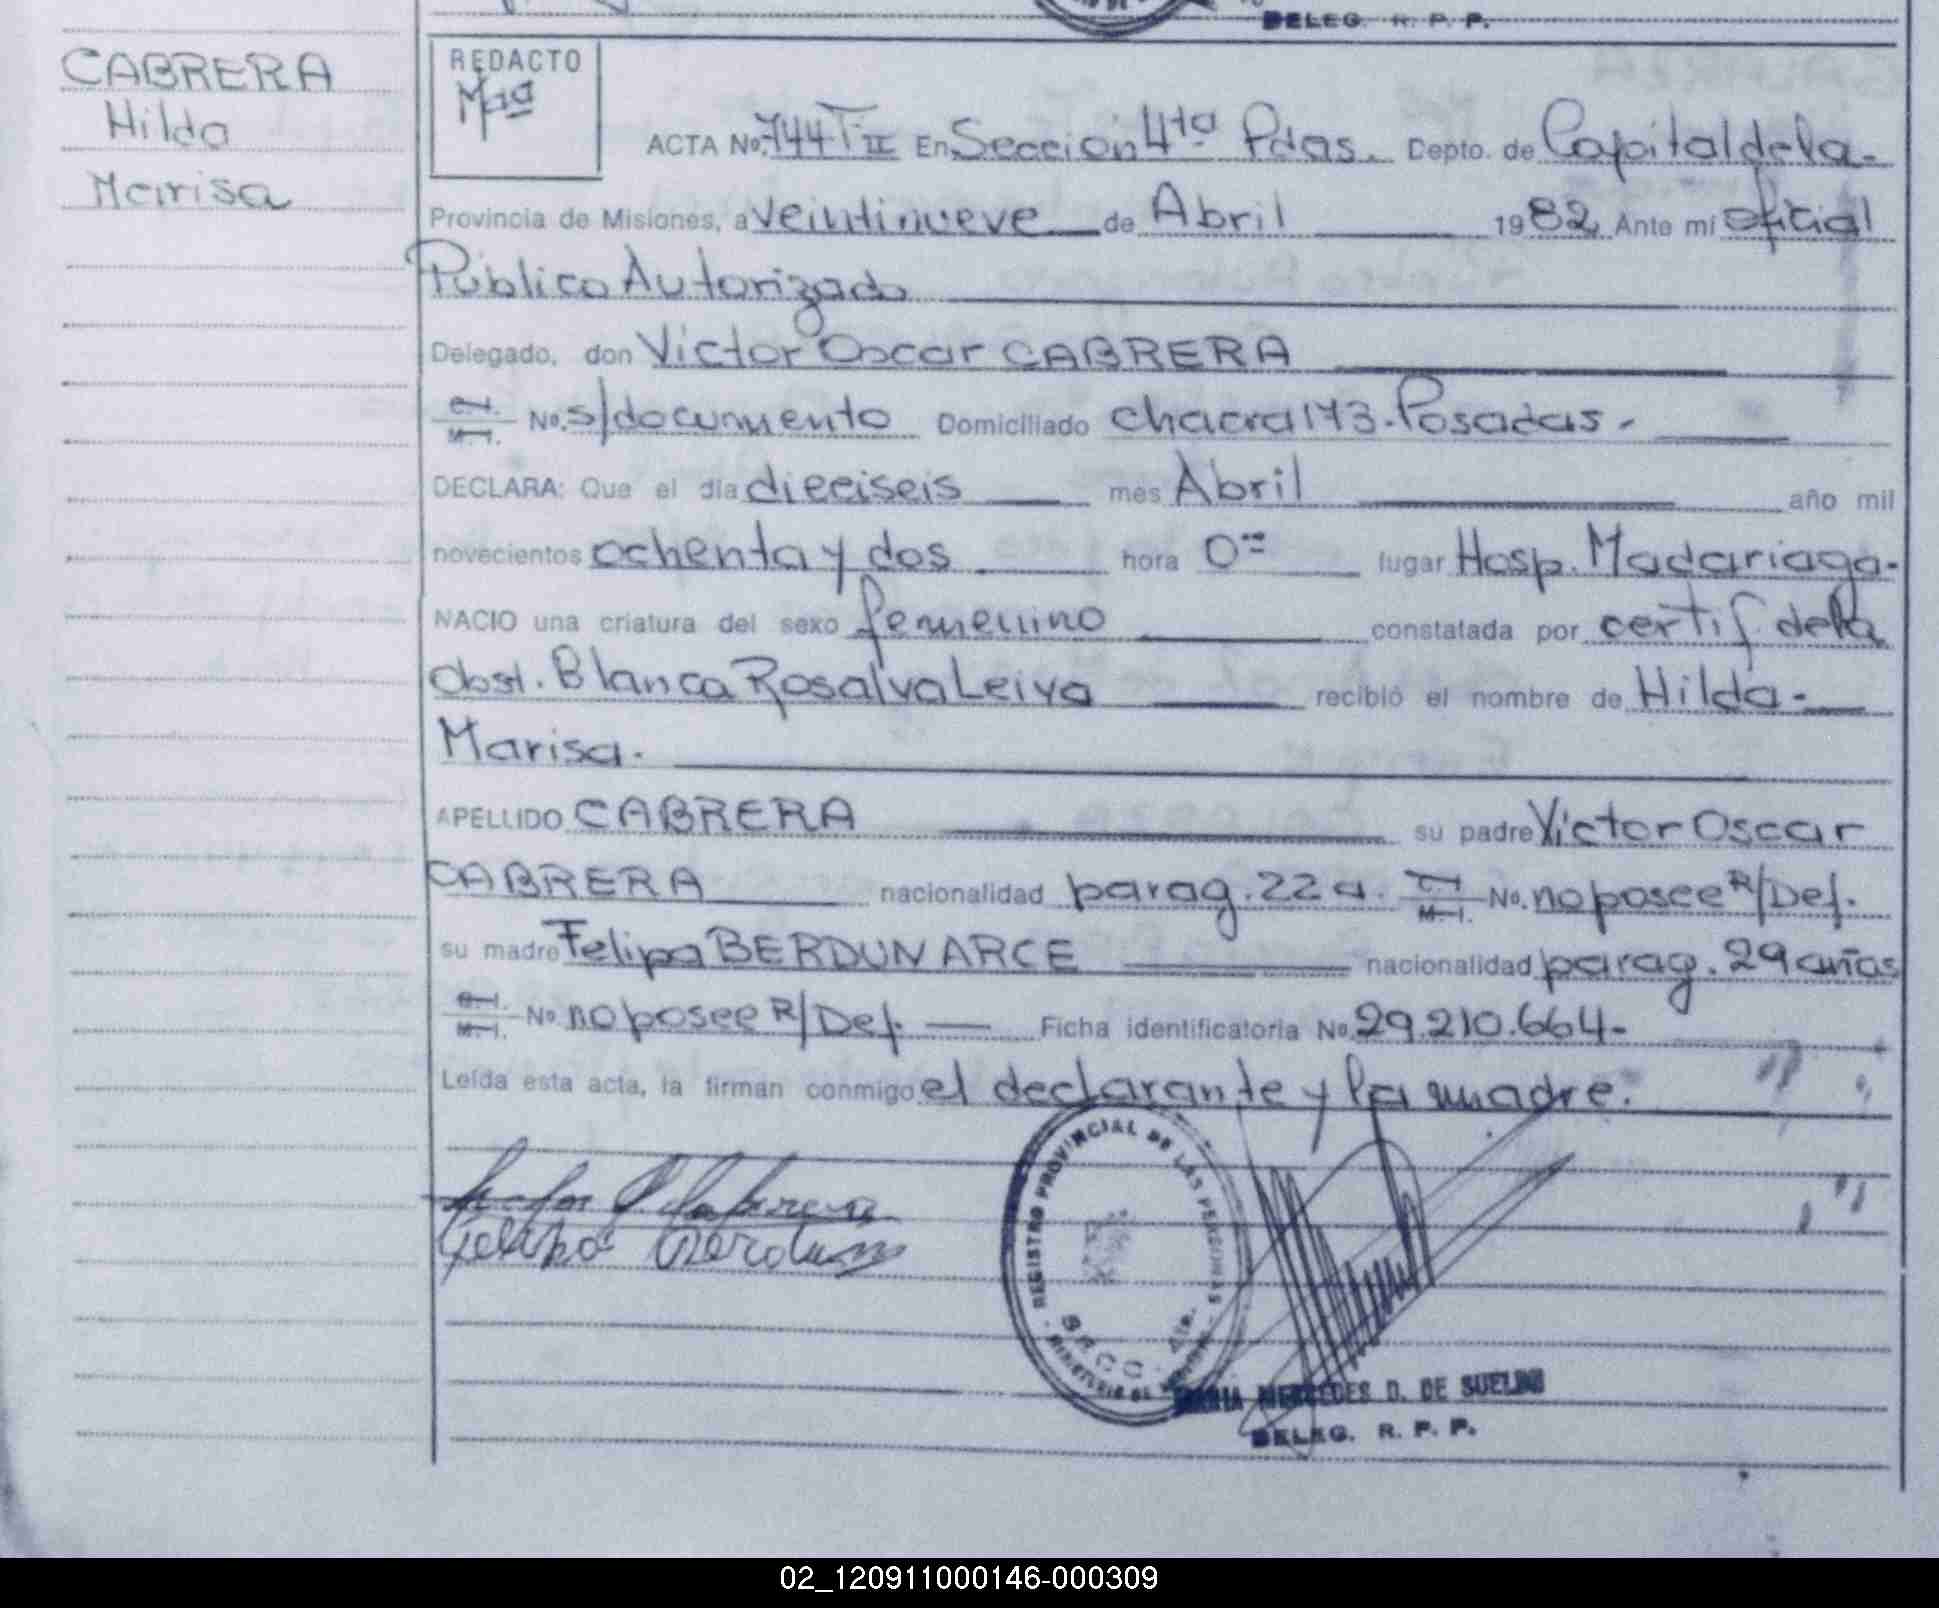 DELEG. R. P. P.
CABRERA
Hilda
Marisa
REDACTO
Maa
ACTA No. 744 T II En Sección 4ta Pdas. Depto. de Capital de la-
Provincia de Misiones, a veintinueve de Abril 1982 Ante mí oficial
Público Autorizado
Delegado, don Victor Oscar CABRERA
C.I. M.I. No. s/documento Domiciliado chacra 173-Posadas.-
DECLARA: Que el día dieciseis mes Abril año mil
novecientos ochenta y dos hora 0 lugar Hosp. Madariaga-
NACIO una criatura del sexo femenino constatada por certif. de la
obst. Blanca Rosalva Leiva recibió el nombre de Hilda-
Marisa.
APELLIDO CABRERA su padre Victor Oscar
CABRERA nacionalidad parag. 22 a. C.I. M.I. No. no posee R/Def.
su madre Felipa BERDUN ARCE nacionalidad parag. 29 años
C.I. M.I. No no posee R/Def. Ficha identificatoria No. 29.210.664-
Leída esta acta, la firman conmigo el declarante y la madre.
Cabrera
Felipa Berdun
REGISTRO PROVINCIAL DE LAS PERSONAS
MINISTERIO DE
4ta.
MARIA MERCEDES D. DE SUELDO
DELEG. R. P. P.
02_120911000146-000309